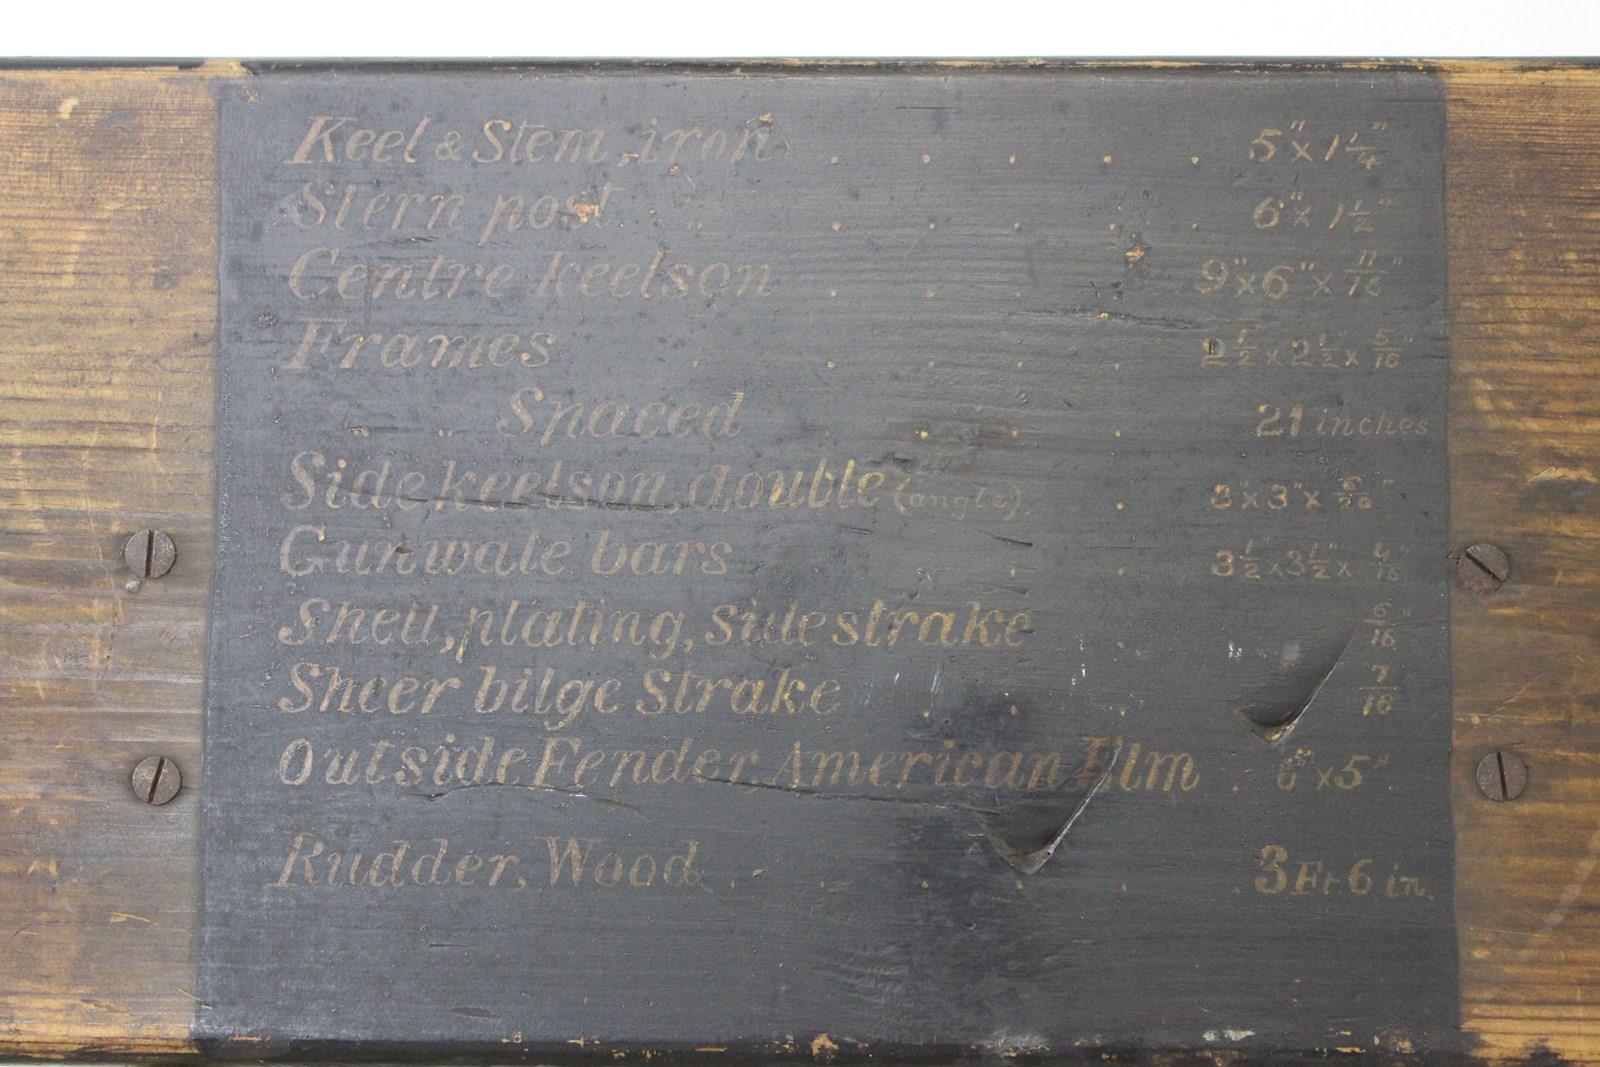 Keel & Stem, iron . . . . . 5" x 1 1/4"
Stern post " . . . . . 6" x 1 1/2"
Centre keelson . . . . 9" x 6" x 11/16"
Frames . . . . . 2 1/2" x 2 1/2" x 5/16"
" Spaced . . . 21 inches
Side keelson, double (angle) . 3" x 3" x
Gunwale bars . . . 3 1/2" x 3 1/2" x 4/16"
Shell, plating, Side strake . 6/16"
Sheer bilge Strake . . . 7/16"
Outside Fender, American Elm . 6" x 5"
Rudder, Wood . . . . . 3 Ft 6 in.